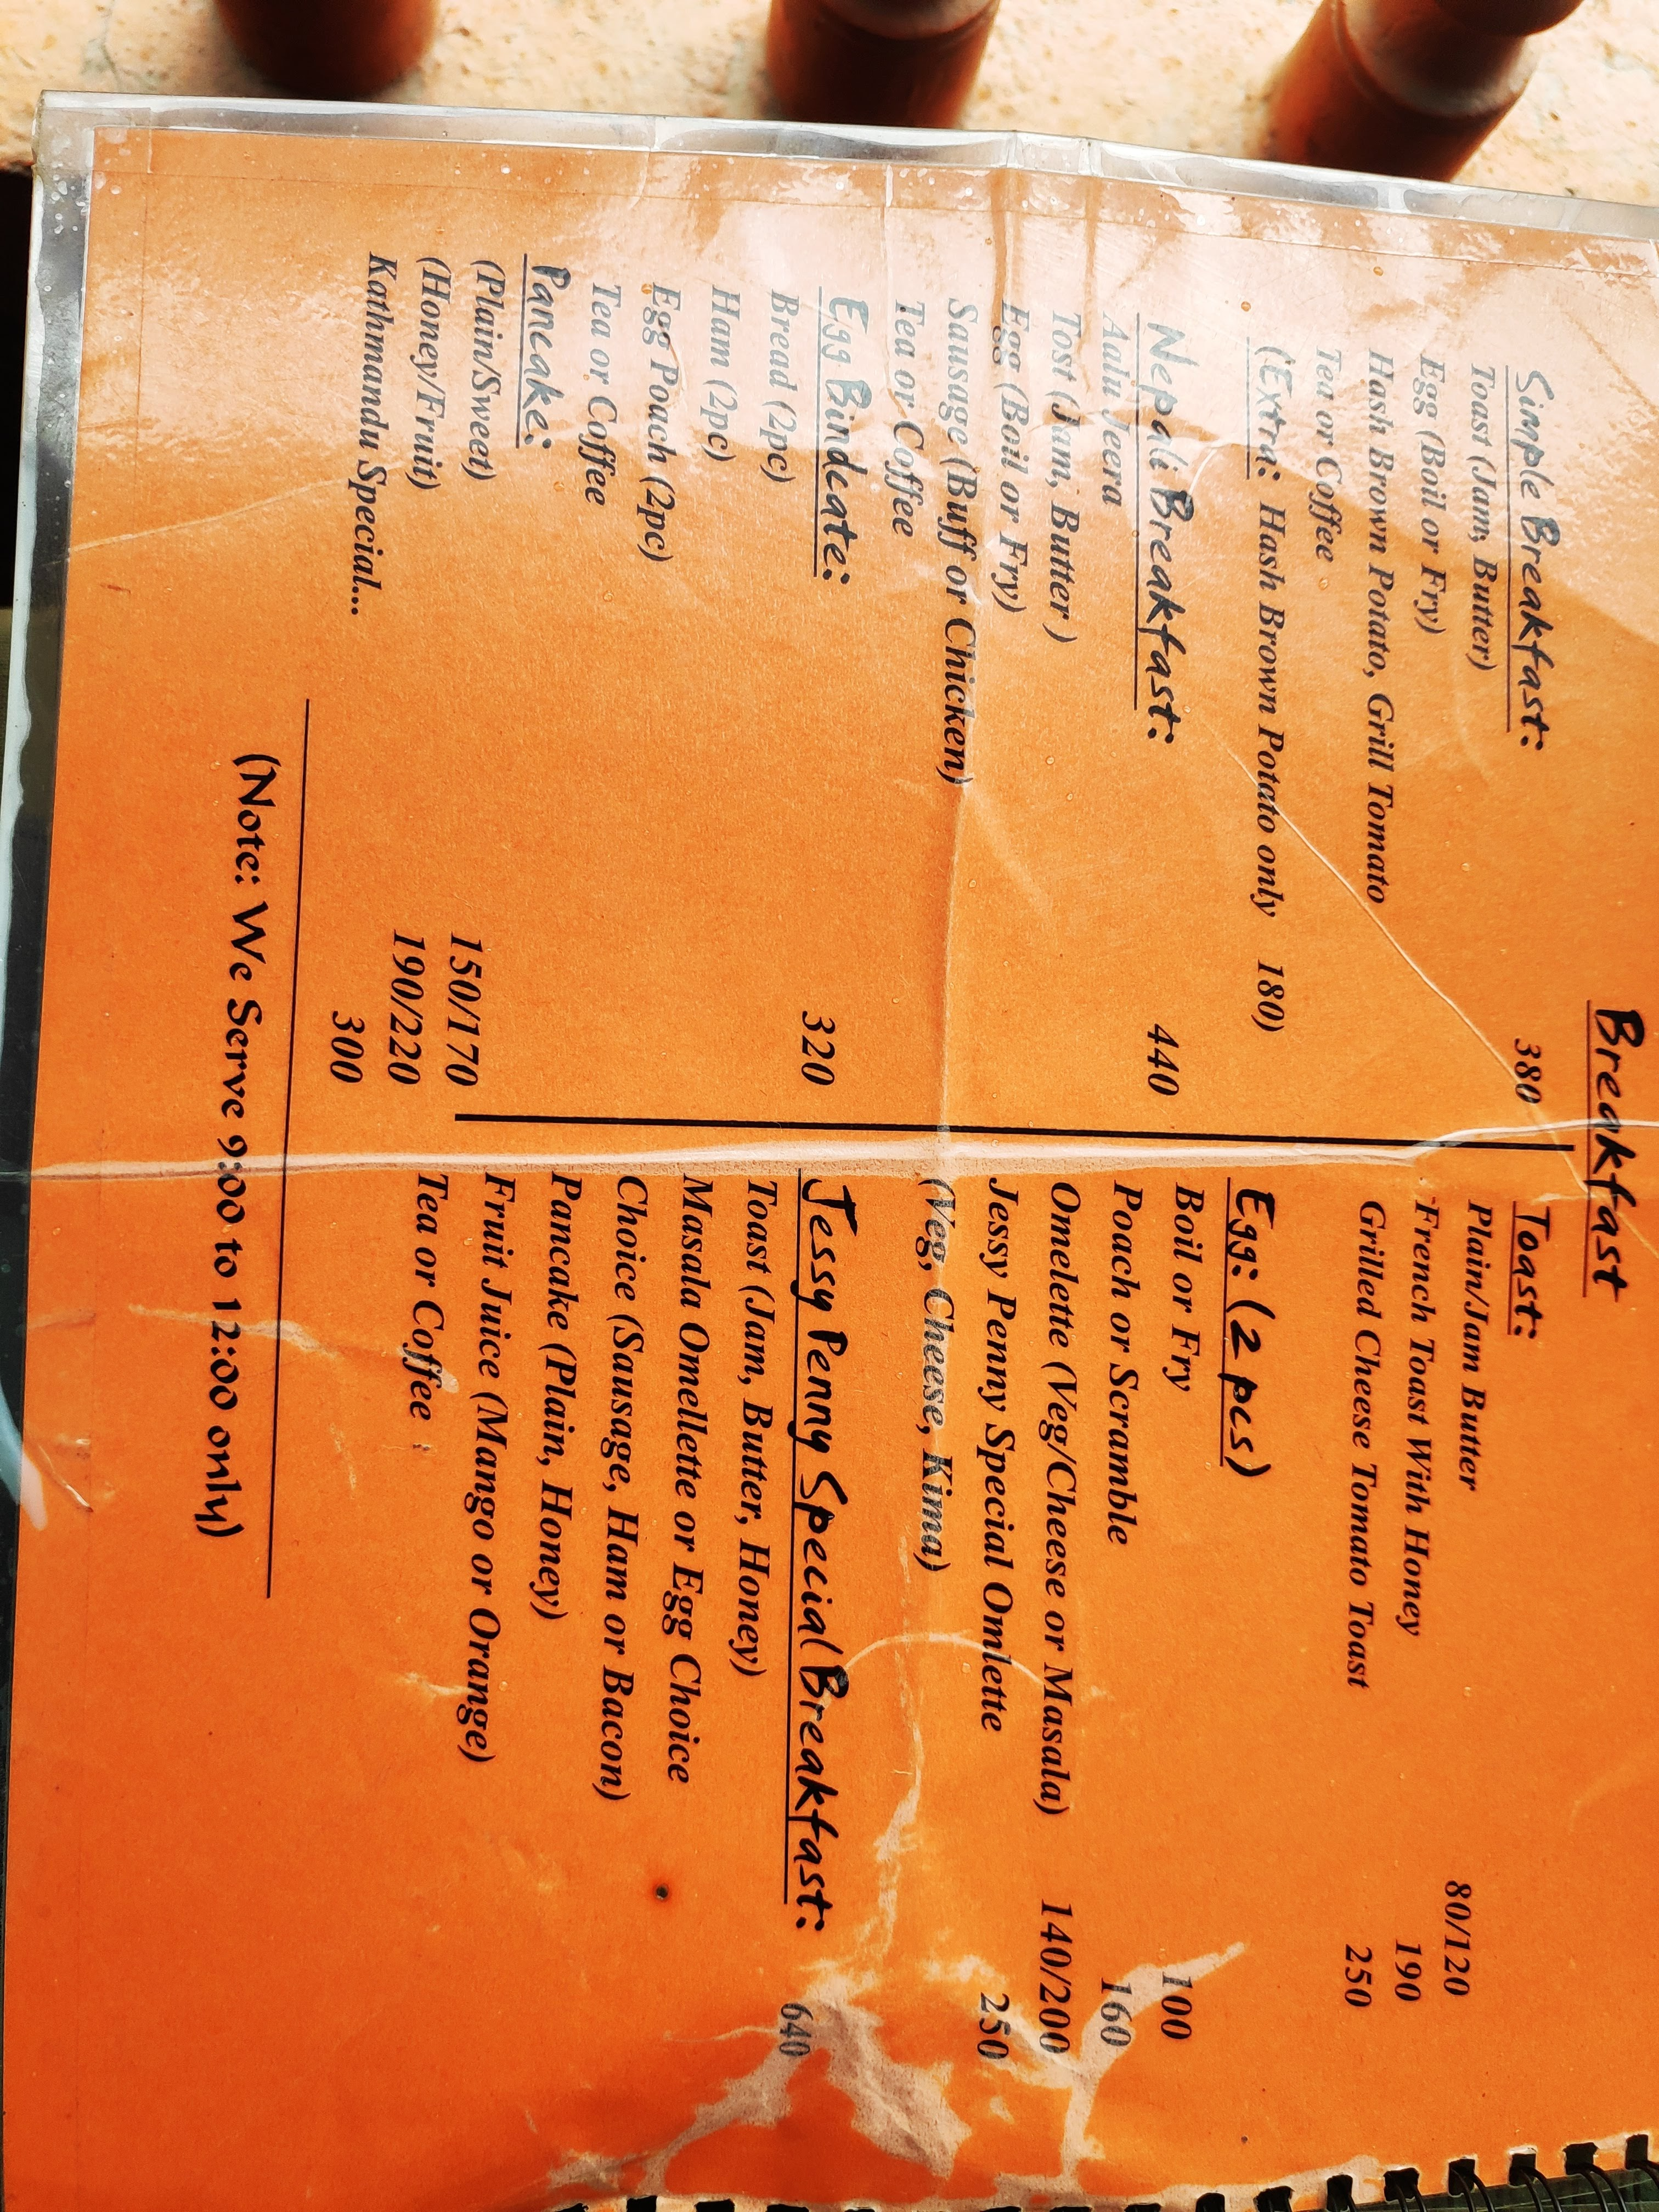 Breakfast
Simple Breakfast: 380
Toast (Jam, Butter)
Egg (Boil or Fry)
Hash Brown Potato, Grill Tomato
Tea or Coffee
(Extra: Hash Brown Potato only 180)
Nepali Breakfast: 440
Aalu Jeera
Tost (Jam, Butter )
Egg (Boil or Fry)
Sausage (Buff or Chicken)
Tea or Coffee
Egg Bindcate: 320
Bread (2pc)
Ham (2pc)
Egg Poach (2pc)
Tea or Coffee
Pancake:
(Plain/Sweet) 150/170
(Honey/Fruit) 190/220
Kathmandu Special... 300
Toast:
Plain/Jam Butter 80/120
French Toast With Honey 190
Grilled Cheese Tomato Toast 250
Egg: (2 pcs)
Boil or Fry 100
Poach or Scramble 160
Omelette (Veg/Cheese or Masala) 140/200
Jessy Penny Special Omlette 250
(Veg, Cheese, Kima)
Jessy Penny Special Breakfast: 640
Toast (Jam, Butter, Honey)
Masala Omellette or Egg Choice
Choice (Sausage, Ham or Bacon)
Pancake (Plain, Honey)
Fruit Juice (Mango or Orange)
Tea or Coffee
(Note: We Serve 9:00 to 12:00 only)